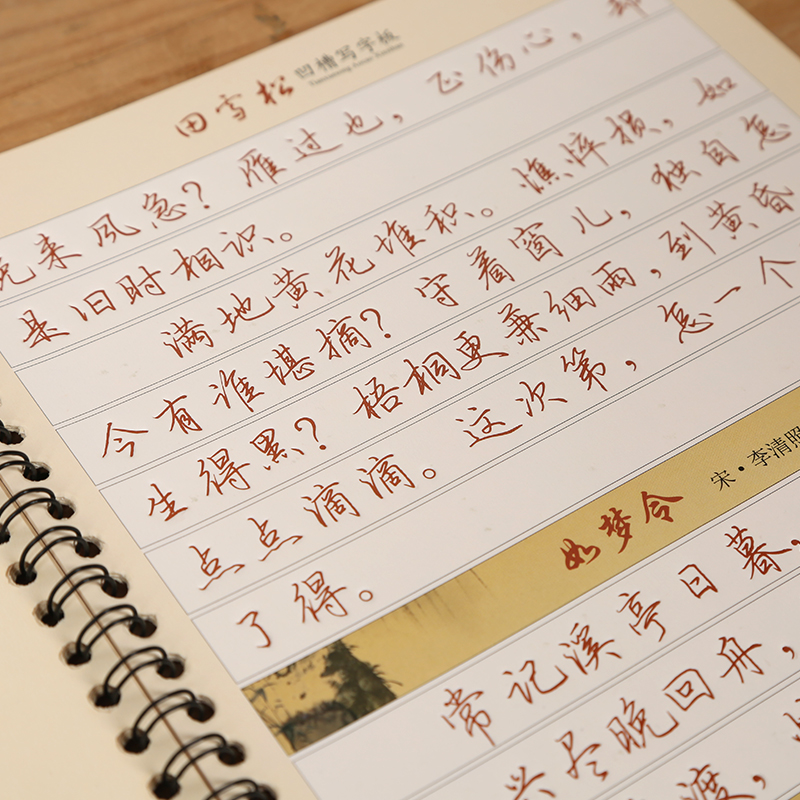 田雪松 凹槽写字板
来风急？雁过也，正伤心，却
是旧时相识。
满地黄花堆积。憔悴损，如
今有谁堪摘？守着窗儿，独自怎
生得黑？梧桐更兼细雨，到黄昏
点点滴滴。这次第，怎一个
了得。
如梦令 宋·李清照
常记溪亭日暮，
兴尽晚回舟，
渡，